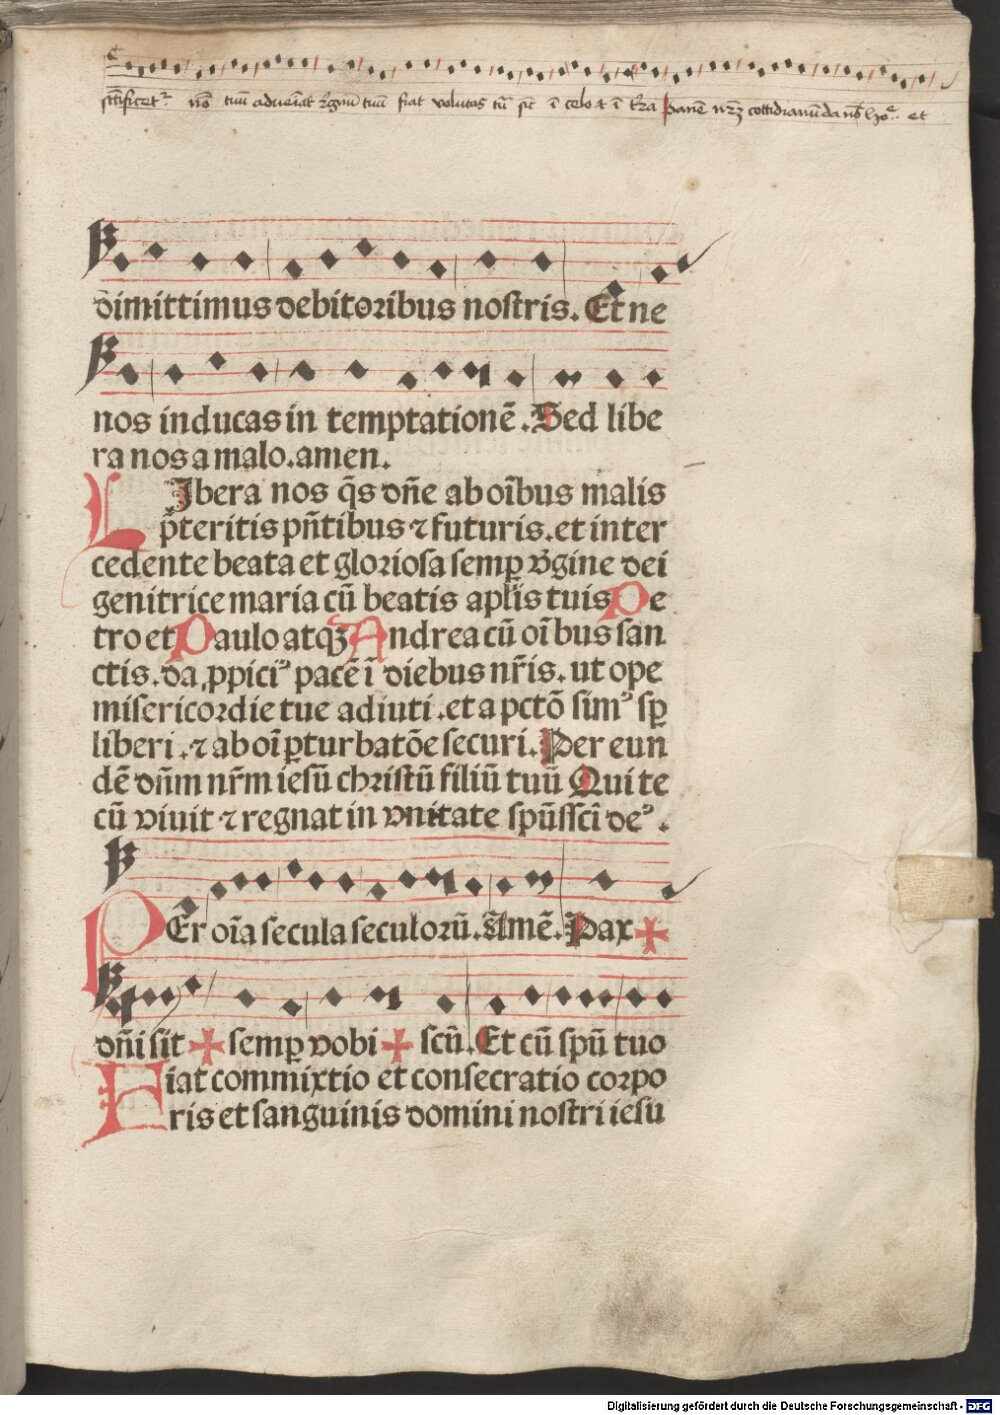 sctificet᷑ noē tuū adueīat rgnū tuū fiat volutas tū sic ī celo ⁊ ī t̄ra Panē nrꝫ cottidianū da nob̄ hoᵉ. et
dimittimus debitoribus nostris. Et ne
nos inducas in temptationē. Sed libe
ra nos a malo. amen.
LIbera nos q̄s dn̄e ab oībus malis
p̄teritis pn̄tibus ⁊ futuris. et inter
cedente beata et gloriosa semꝑ v̄gine dei
genitrice maria cū beatis apl̄is tuis Pe
tro et Paulo atqꝫ Andrea cū oībus san
ctis. da ꝓpiciꝰ pacē ī diebus nr̄is. ut ope
misericordie tue adiuti. et a pctō simꝰ sꝑ
liberi. ⁊ ab oī ꝑturbatōe securi. Per eun
dē dn̄m nr̄m iesū christū filiū tuū Qui te
cū viuit ⁊ regnat in vnitate spūs sc̄i deꝰ.
PEr oīa secula seculorū. Amē. Pax ✠
dn̄i sit ✠ semꝑ vobi ✠ scū. Et cū spū tuo
Fiat commixtio et consecratio corpo
ris et sanguinis domini nostri iesu
Digitalisierung gefördert durch die Deutsche Forschungsgemeinschaft - DFG